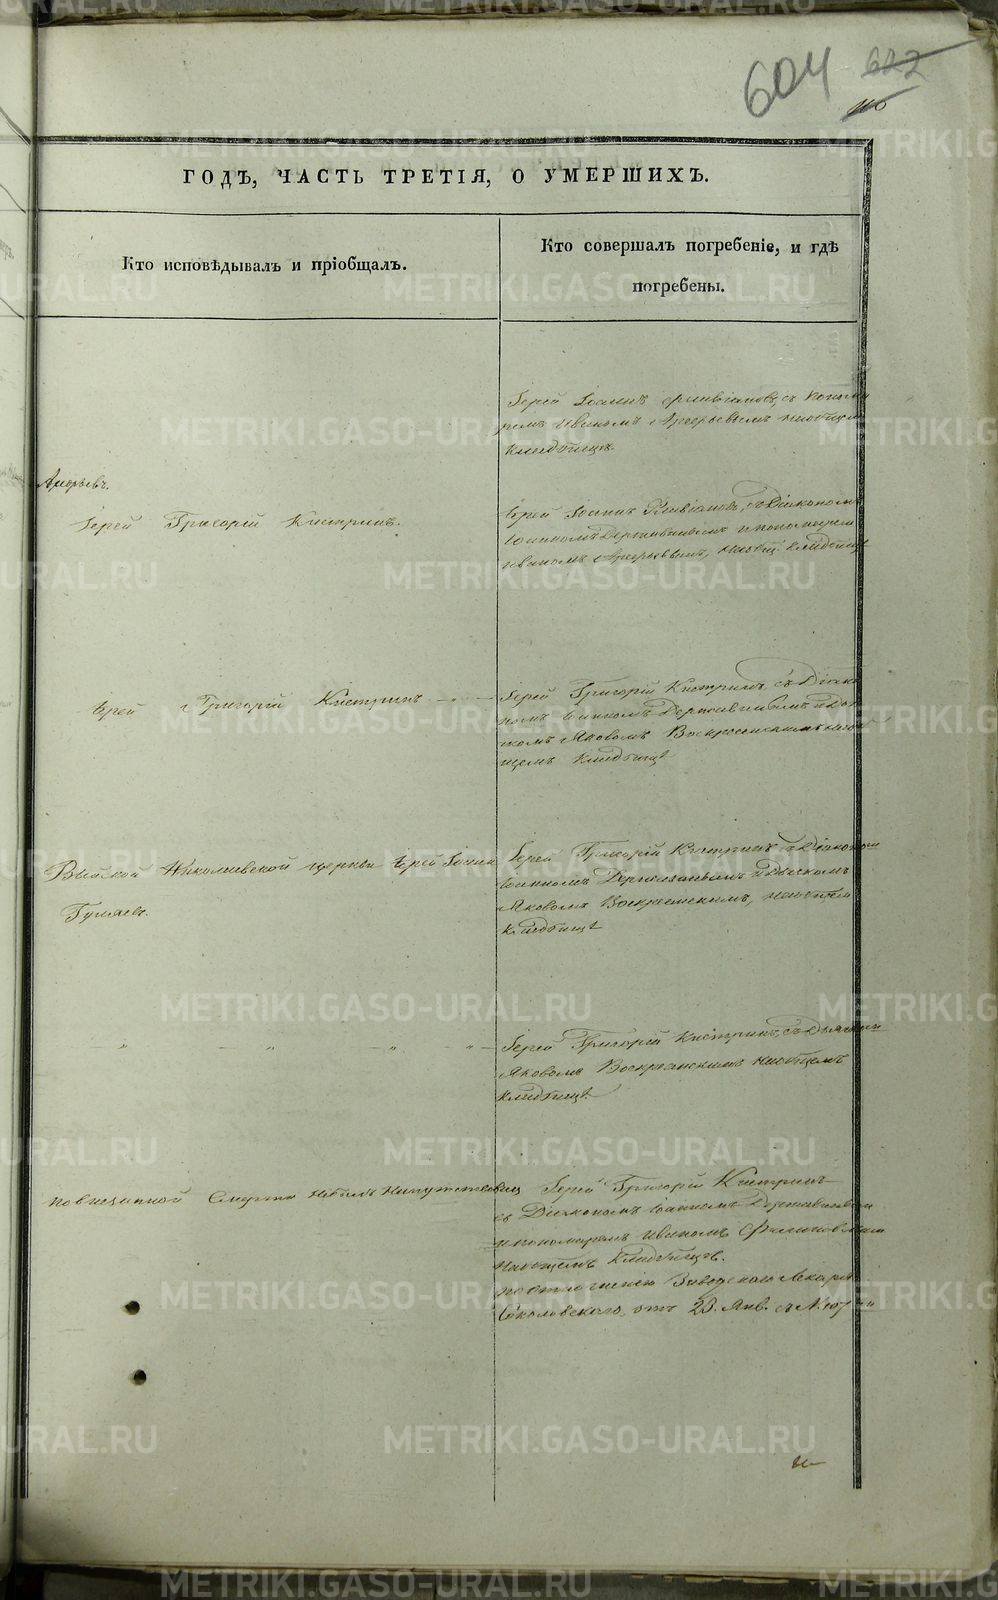 604 622
110
ГОДЪ, ЧАСТЬ ТРЕТІЯ, О УМЕРШИХЪ.
Кто исповѣдывалъ и пріобщалъ.
Кто совершалъ погребеніе, и гдѣ
погребены.
Іерей Іоаннъ Флавіановъ, съ
Иваномъ
кладбищѣ.
Іерей Григорій Кистринъ.
Іерей Іоаннъ Флавіановъ, съ Діакономъ
Іоанномъ Державинымъ и пономаремъ
Иваномъ кладбищѣ
Іерей Григорій Кистринъ
Іерей Григорій Кистринъ, съ Діако
номъ Іоанномъ Державинымъ и дья
комъ Яковомъ Воскресенскимъ на об
щемъ кладбищѣ
Выйской Николаевской церкви Іерей Іоаннъ
Іерей Григорій Кистринъ, съ Діакономъ
Іоанномъ Державинымъ и дьякомъ
Яковомъ Воскресенскимъ, на общемъ
кладбищѣ
Іерей Григорій Кистринъ, съ
Яковомъ Воскресенскимъ на общемъ
кладбищѣ.
По внезапной смерти небылъ напутствованъ
Іерей Григорій Кистринъ
съ Діакономъ Іоанномъ Державинымъ
и пономаремъ Иваномъ
на общемъ кладбищѣ.
по отношенію Заводскаго Лекаря
Соколовскаго, отъ 23. Янв. № 107
METRIKI.GASO-URAL.RU